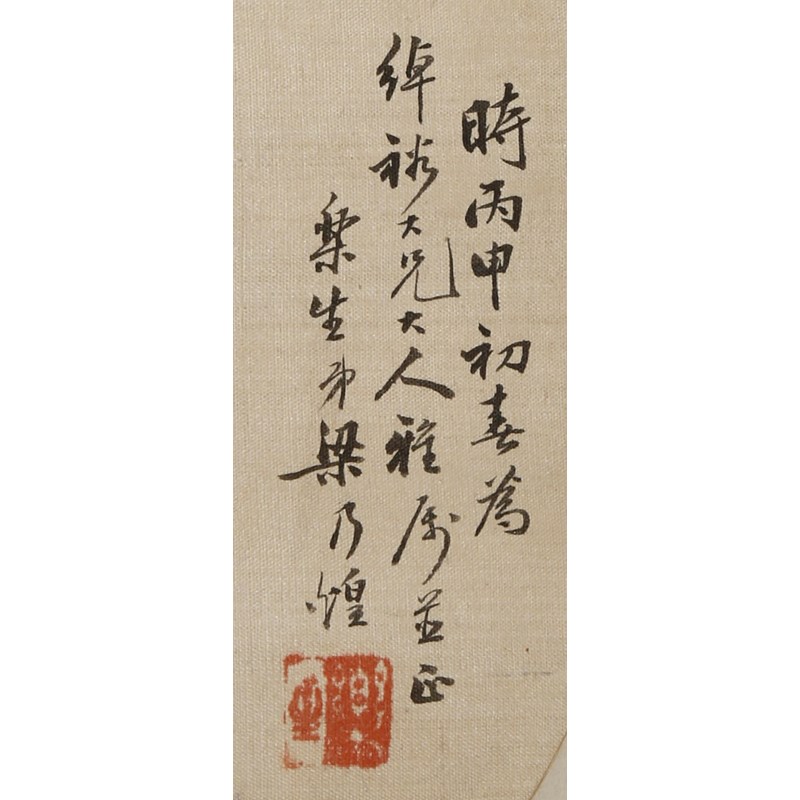 時丙申初春為
綽裕大兄大人雅屬並正
樂生弟梁乃煌